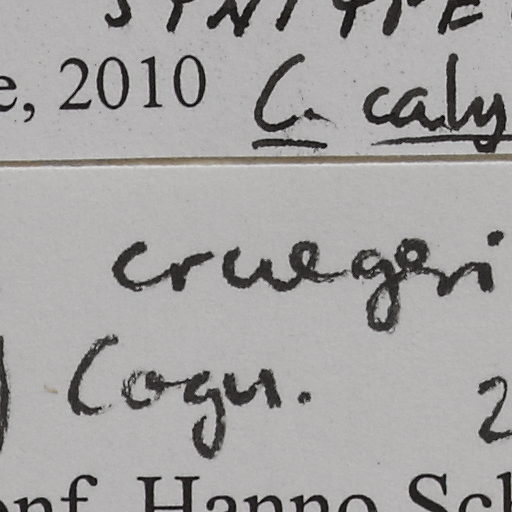 SYNTYPE
e, 2010 C. caly
cruegeri
) Cogn. 2
onf. Hanno Sch